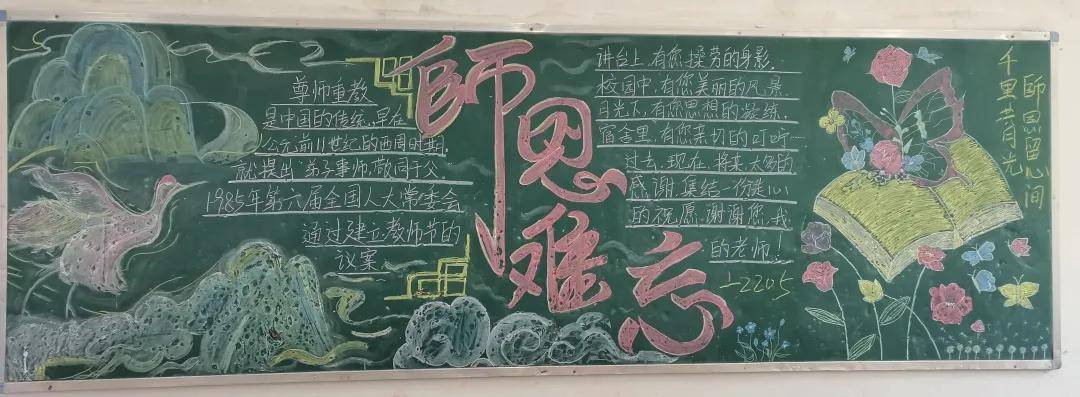 尊师重教
是中国的传统,早在
公元前11世纪的西周时期,
就提出"弟子事师,敬同于父"
1985年第六届全国人大常委会
通过建立教师节的
议案
師恩难忘
讲台上,有您操劳的身影,
校园中,有您美丽的风景,
月光下,有您思想的凝练,
宿舍里,有您亲切的叮咛
过去、现在、将来,太多的
感谢,集结一份浓心
的祝愿,谢谢您,我
的老师!
—2205
師恩留心间
千里共月光